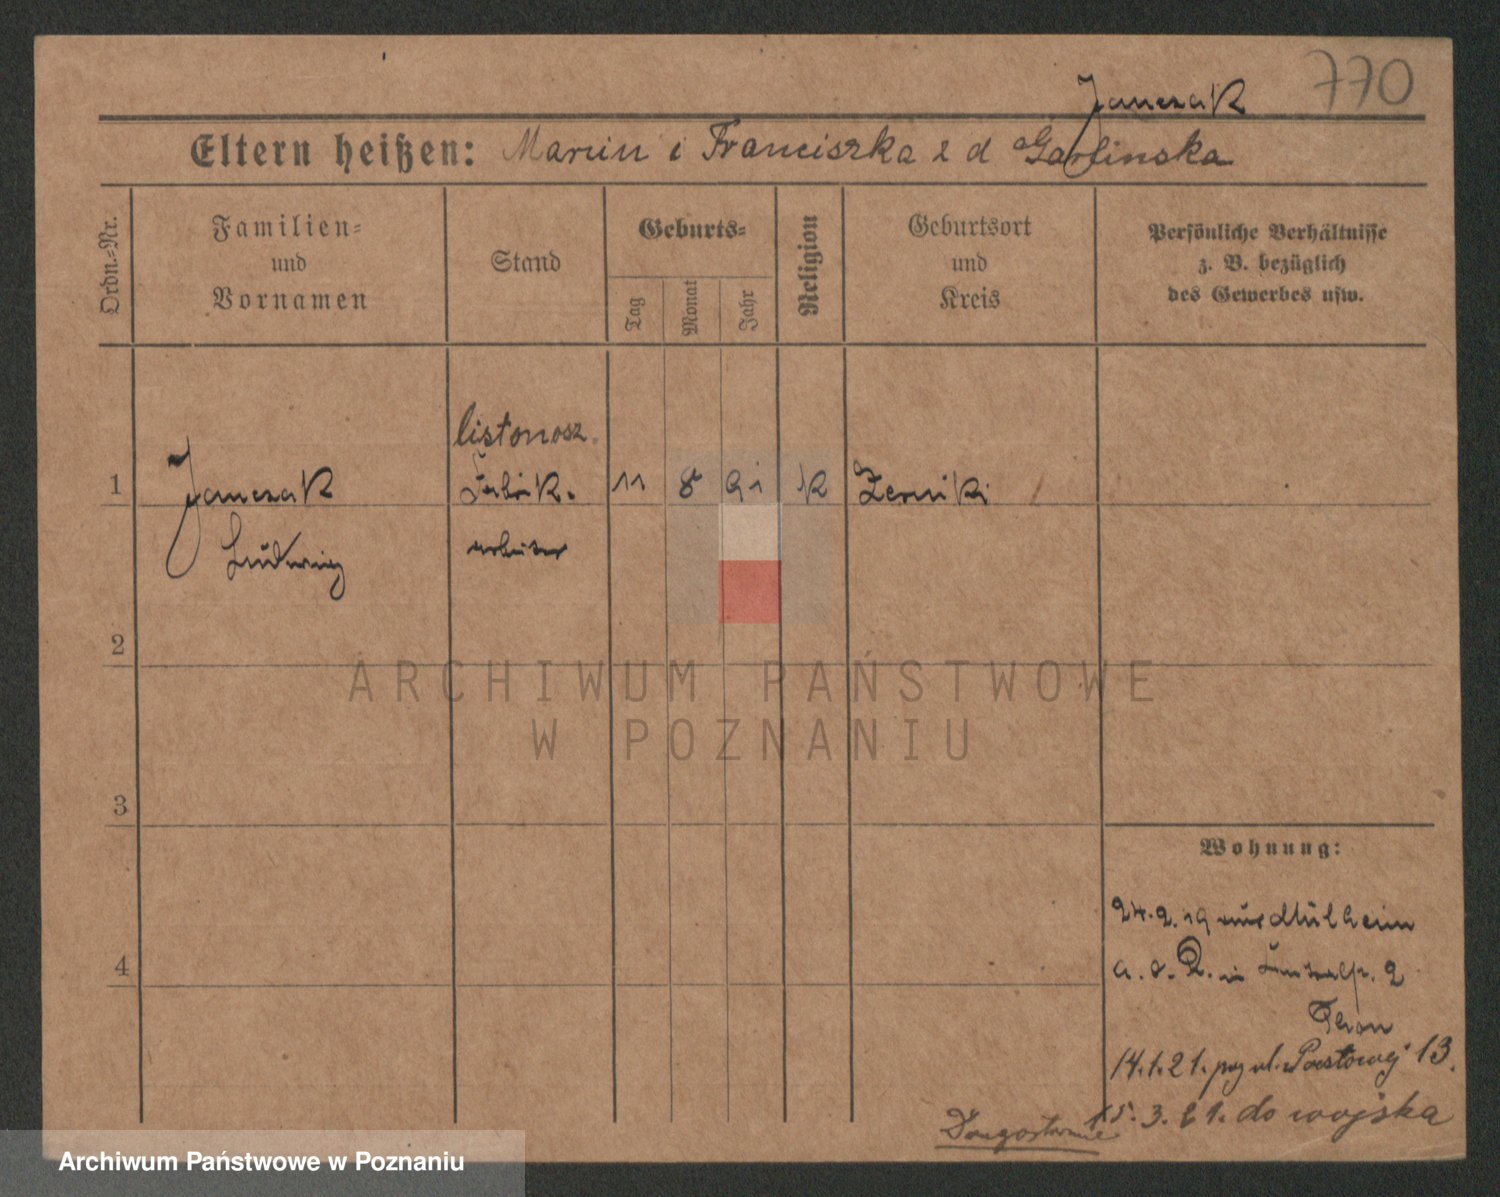 770
Janczak
Eltern heißen: Marcin i Franciszka z d Garbinska
Ordn.-Nr.
Familien-
und
Vornamen
Stand
Geburts-
Tag
Monat
Jahr
Religion
Geburtsort
und
Kreis
Persönliche Verhältnisse
z. B. bezüglich
des Gewerbes usw.
listonosz.
1 Janczak Fabrik- 11 8 91 k Zerniki
Ludwig arbeiter
2
ARCHIWUM PAŃSTWOWE
W POZNANIU
3
Wohnung:
24.2.19 aus Mülheim
4
a. d. R. in 2
14.1.21. ul. Pocztowej 13.
15. 3. 21. do wojska
Archiwum Państwowe w Poznaniu